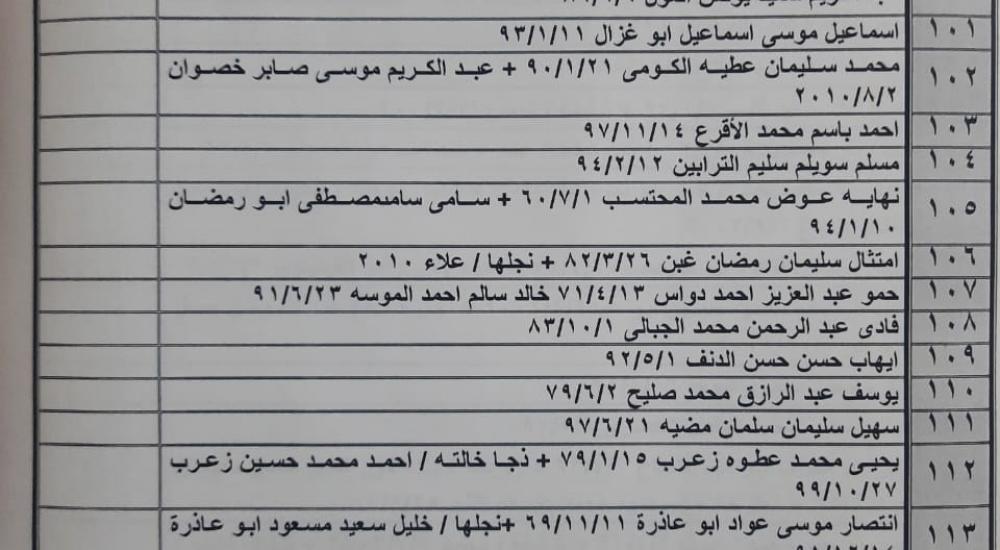 ١٠١ اسماعيل موسى اسماعيل ابو غزال ٩٣/١/١١
١٠٢ محمد سليمان عطيه الكومى ٩٠/١/٢١ + عبد الكريم موسى صابر خصوان
٢٠١٠/٨/٢
١٠٣ احمد باسم محمد الأقرع ٩٧/١١/١٤
١٠٤ مسلم سويلم سليم الترابين ٩٤/٢/١٢
١٠٥ نهايه عوض محمد المحتسب ٦٠/٧/١ + سامى سامىمصطفى ابو رمضان
٩٤/١/١٠
١٠٦ امتثال سليمان رمضان غبن ٨٢/٣/٢٦ + نجلها / علاء ٢٠١٠
١٠٧ حمو عبد العزيز احمد دواس ٧١/٤/١٣ خالد سالم احمد الموسه ٩١/٦/٢٣
١٠٨ فادى عبد الرحمن محمد الجبالى ٨٣/١٠/١
١٠٩ ايهاب حسن حسن الدنف ٩٢/٥/١
١١٠ يوسف عبد الرازق محمد صليح ٧٩/٦/٢
١١١ سهيل سليمان سلمان مضيه ٩٧/٦/٢١
١١٢ يحيى محمد عطوه زعرب ٧٩/١/١٥ + نجا خالته / احمد محمد حسين زعرب
٩٩/١٠/٢٧
١١٣ انتصار موسى عواد ابو عاذرة ٦٩/١١/١١ +نجلها / خليل سعيد مسعود ابو عاذرة